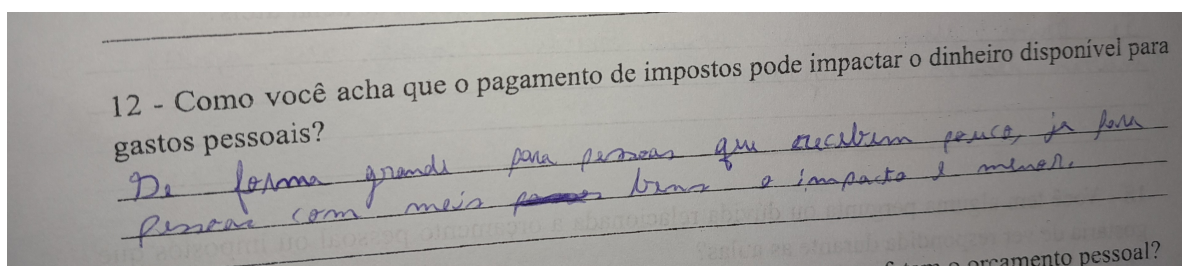 12 - Como você acha que o pagamento de impostos pode impactar o dinheiro disponível para
gastos pessoais?
De forma grande para pessoas que recebem pouco, ja para
pessoas com mais bens o impacto é menor.
o orçamento pessoal?